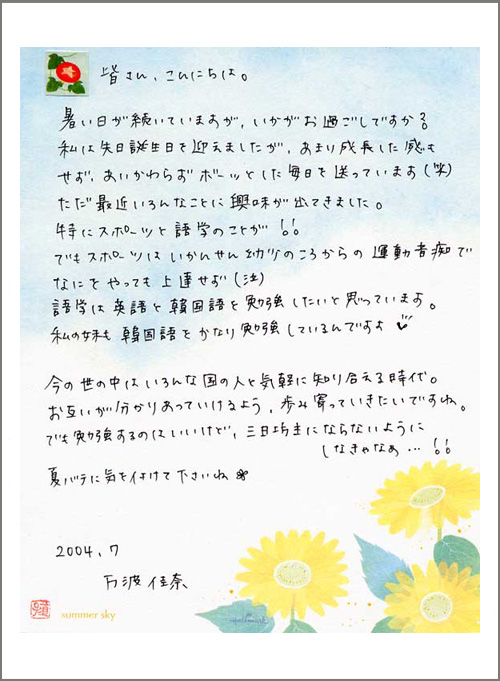 皆さん、こんにちは。
暑い日が続いていますが、いかがお過ごしですか?
私は先日誕生日を迎えましたが、あまり成長した感も
せず、あいかわらずボーッとした毎日を送っています(笑)
ただ最近いろんなことに興味が出てきました。
特にスポーツと語学のことが!!
でもスポーツはいかんせん幼少のころからの運動音痴で
なにをやっても上達せず(泣)
語学は英語と韓国語を勉強したいと思っています。
私の妹も韓国語をかなり勉強しているんですよ
今の世の中はいろんな国の人と気軽に知り合える時代。
お互いが分かりあっていけるよう、歩み寄っていきたいですね。
でも勉強するのはいいけど、三日坊主にならないように
しなきゃなぁ…!!
夏バテに気を付けて下さいね
2004.7
万波佳奈
summer sky
Hallmark